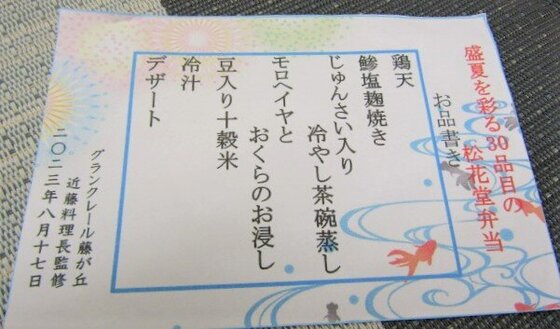 盛夏を彩る30品目の
松花堂弁当
お品書き
鶏天
鯵塩麹焼き
じゅんさい入り
冷やし茶碗蒸し
モロヘイヤと
おくらのお浸し
豆入り十穀米
冷汁
デザート
グランクレール藤が丘
近藤料理長監修
二〇二三年八月十七日